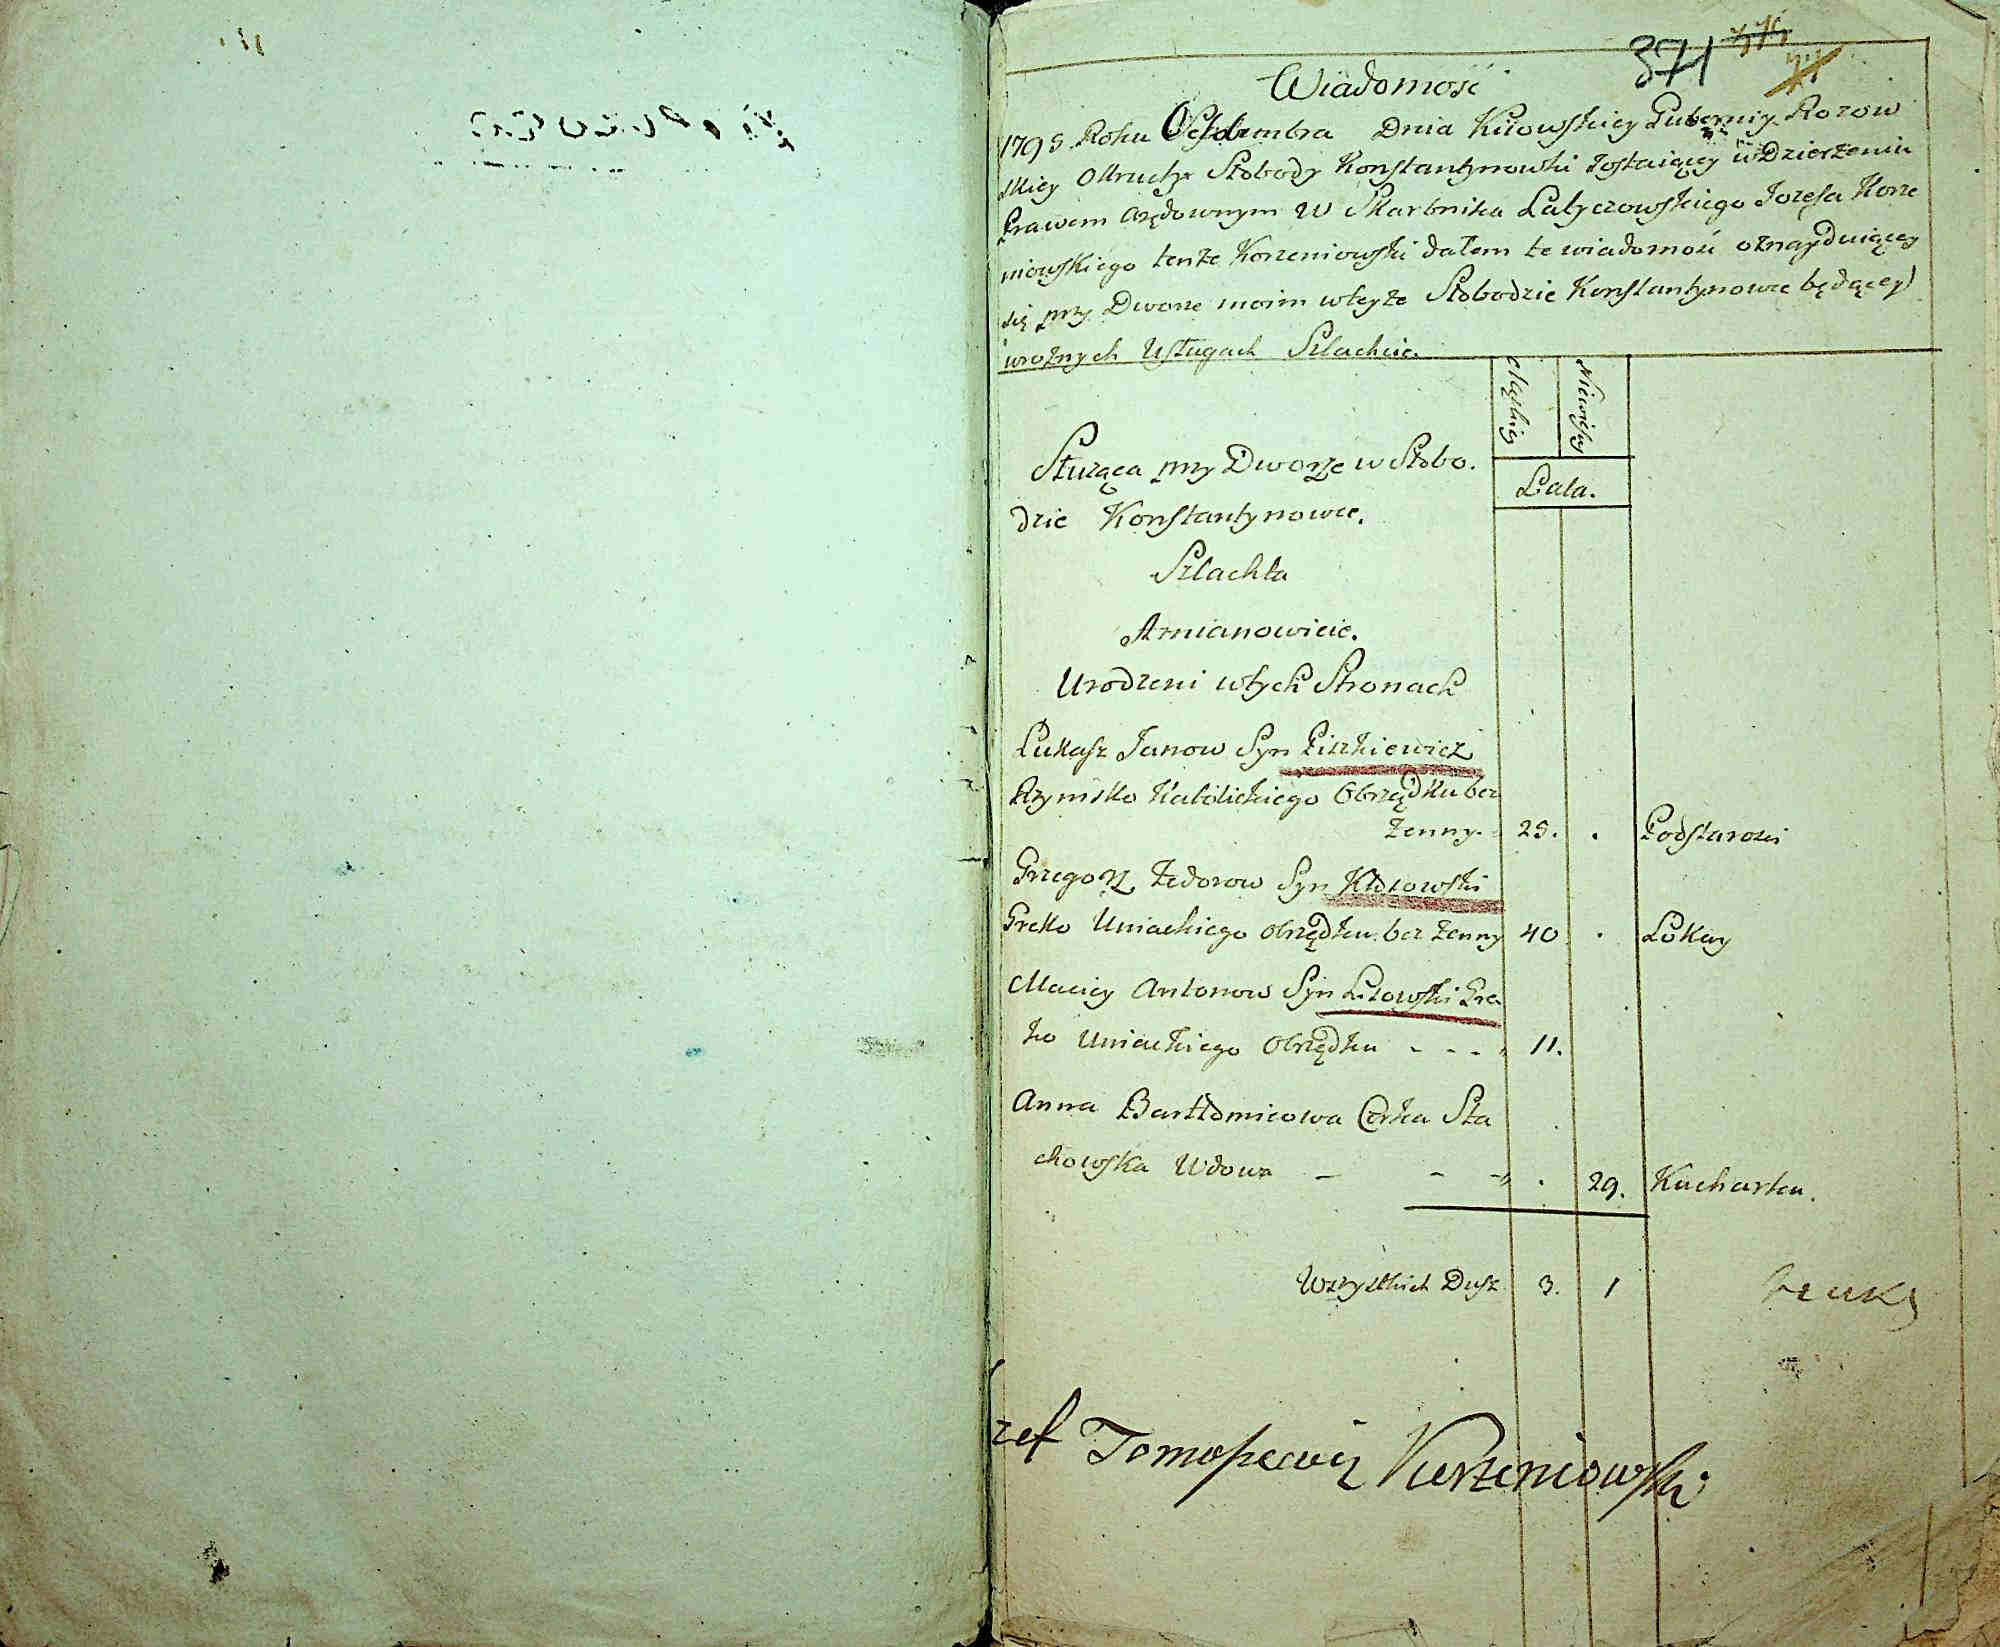 371
Wiadomość
1795 Roku Oktombra Dnia Kiiowskiey Gubernij Rozow
skiey Okruchy Słobody Konstantynowki zostaiącey w Dzierżeniu
Prawem Arędownym W Skarbnika Latyczowskiego Jozefa Korze
niowskiego tenże Korzeniowski dałem te wiadomość o znayduiącey
się przy Dworze moim w teyże Słobodzie Konstantynowce będącey
w rożnych Usługach Szlachcie.
Męskiey
Niewiesciey
Służąca przy Dworze w Słobo.
dzie Konstantynowce.
Lata.
Szlachta
A mianowicie.
Urodzeni w tych Stronach
Łukasz Janow Syn Piszkiewicz
Rzymsko Katolickiego Obrządku bez
Żenny. 25. . Podstarosci
Grzegorz Fedorow Syn
Greko Uniackiego obrządku bez Żenny 40 . Lokay
Maciey Antonow Syn Lisowski Gre
ko Uniackiego Obrządku - - - 11.
Anna Bartłomieiowa Corka Sta
chowska Wdowa - - - . 29. Kucharka.
Wszystkich Dusz 3. 1
zef Tomoszewicz Kurzeniowski